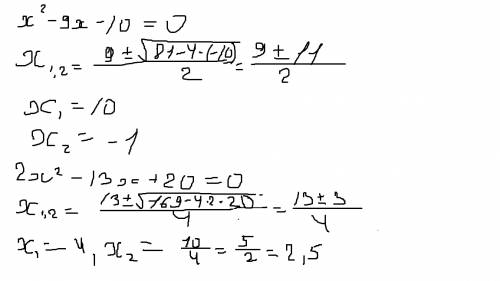 x² - 9x - 10 = 0
x₁,₂ = (9 ± √(81 - 4·(-10)))/2 = (9 ± 11)/2
x₁ = 10
x₂ = -1
2x² - 13x + 20 = 0
x₁,₂ = (13 ± √(169 - 4·2·20))/4 = (13 ± 3)/4
x₁ = 4, x₂ = 10/4 = 5/2 = 2,5